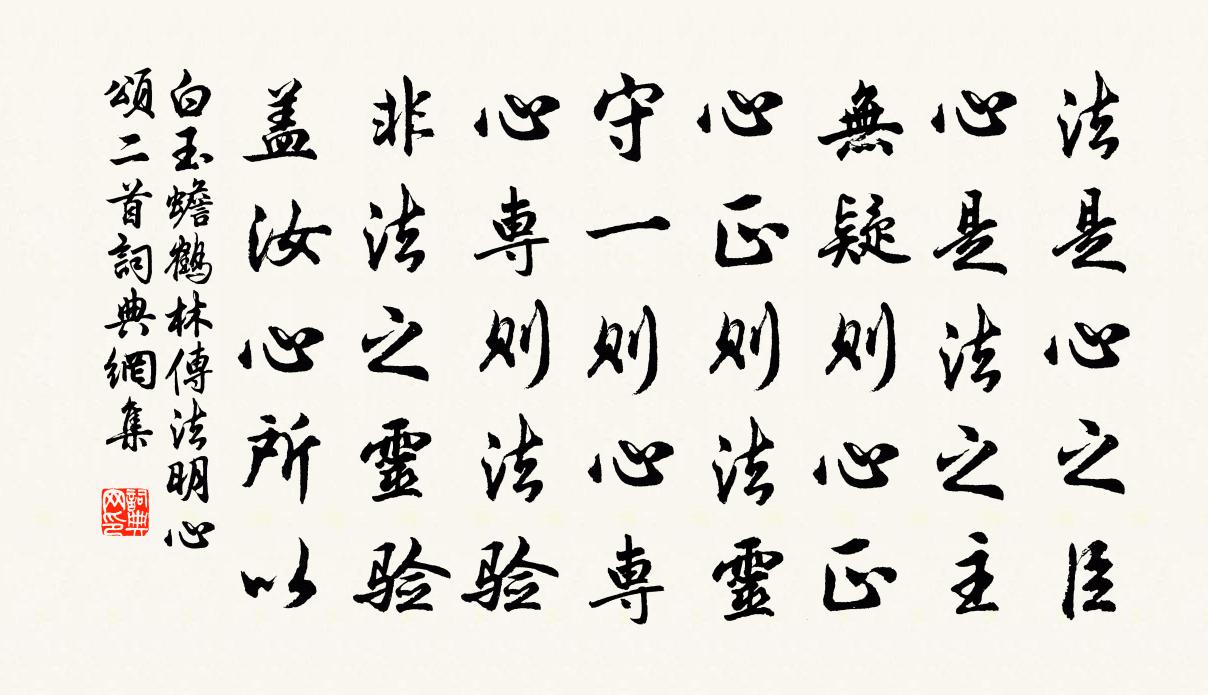 法是心之臣
心是法之主
無疑则心正
心正则法靈
守一则心専
心専则法験
非法之靈验
盖汝心所以
白玉蟾鶴林傳法明心
頌二首詞典網集
詞典网印